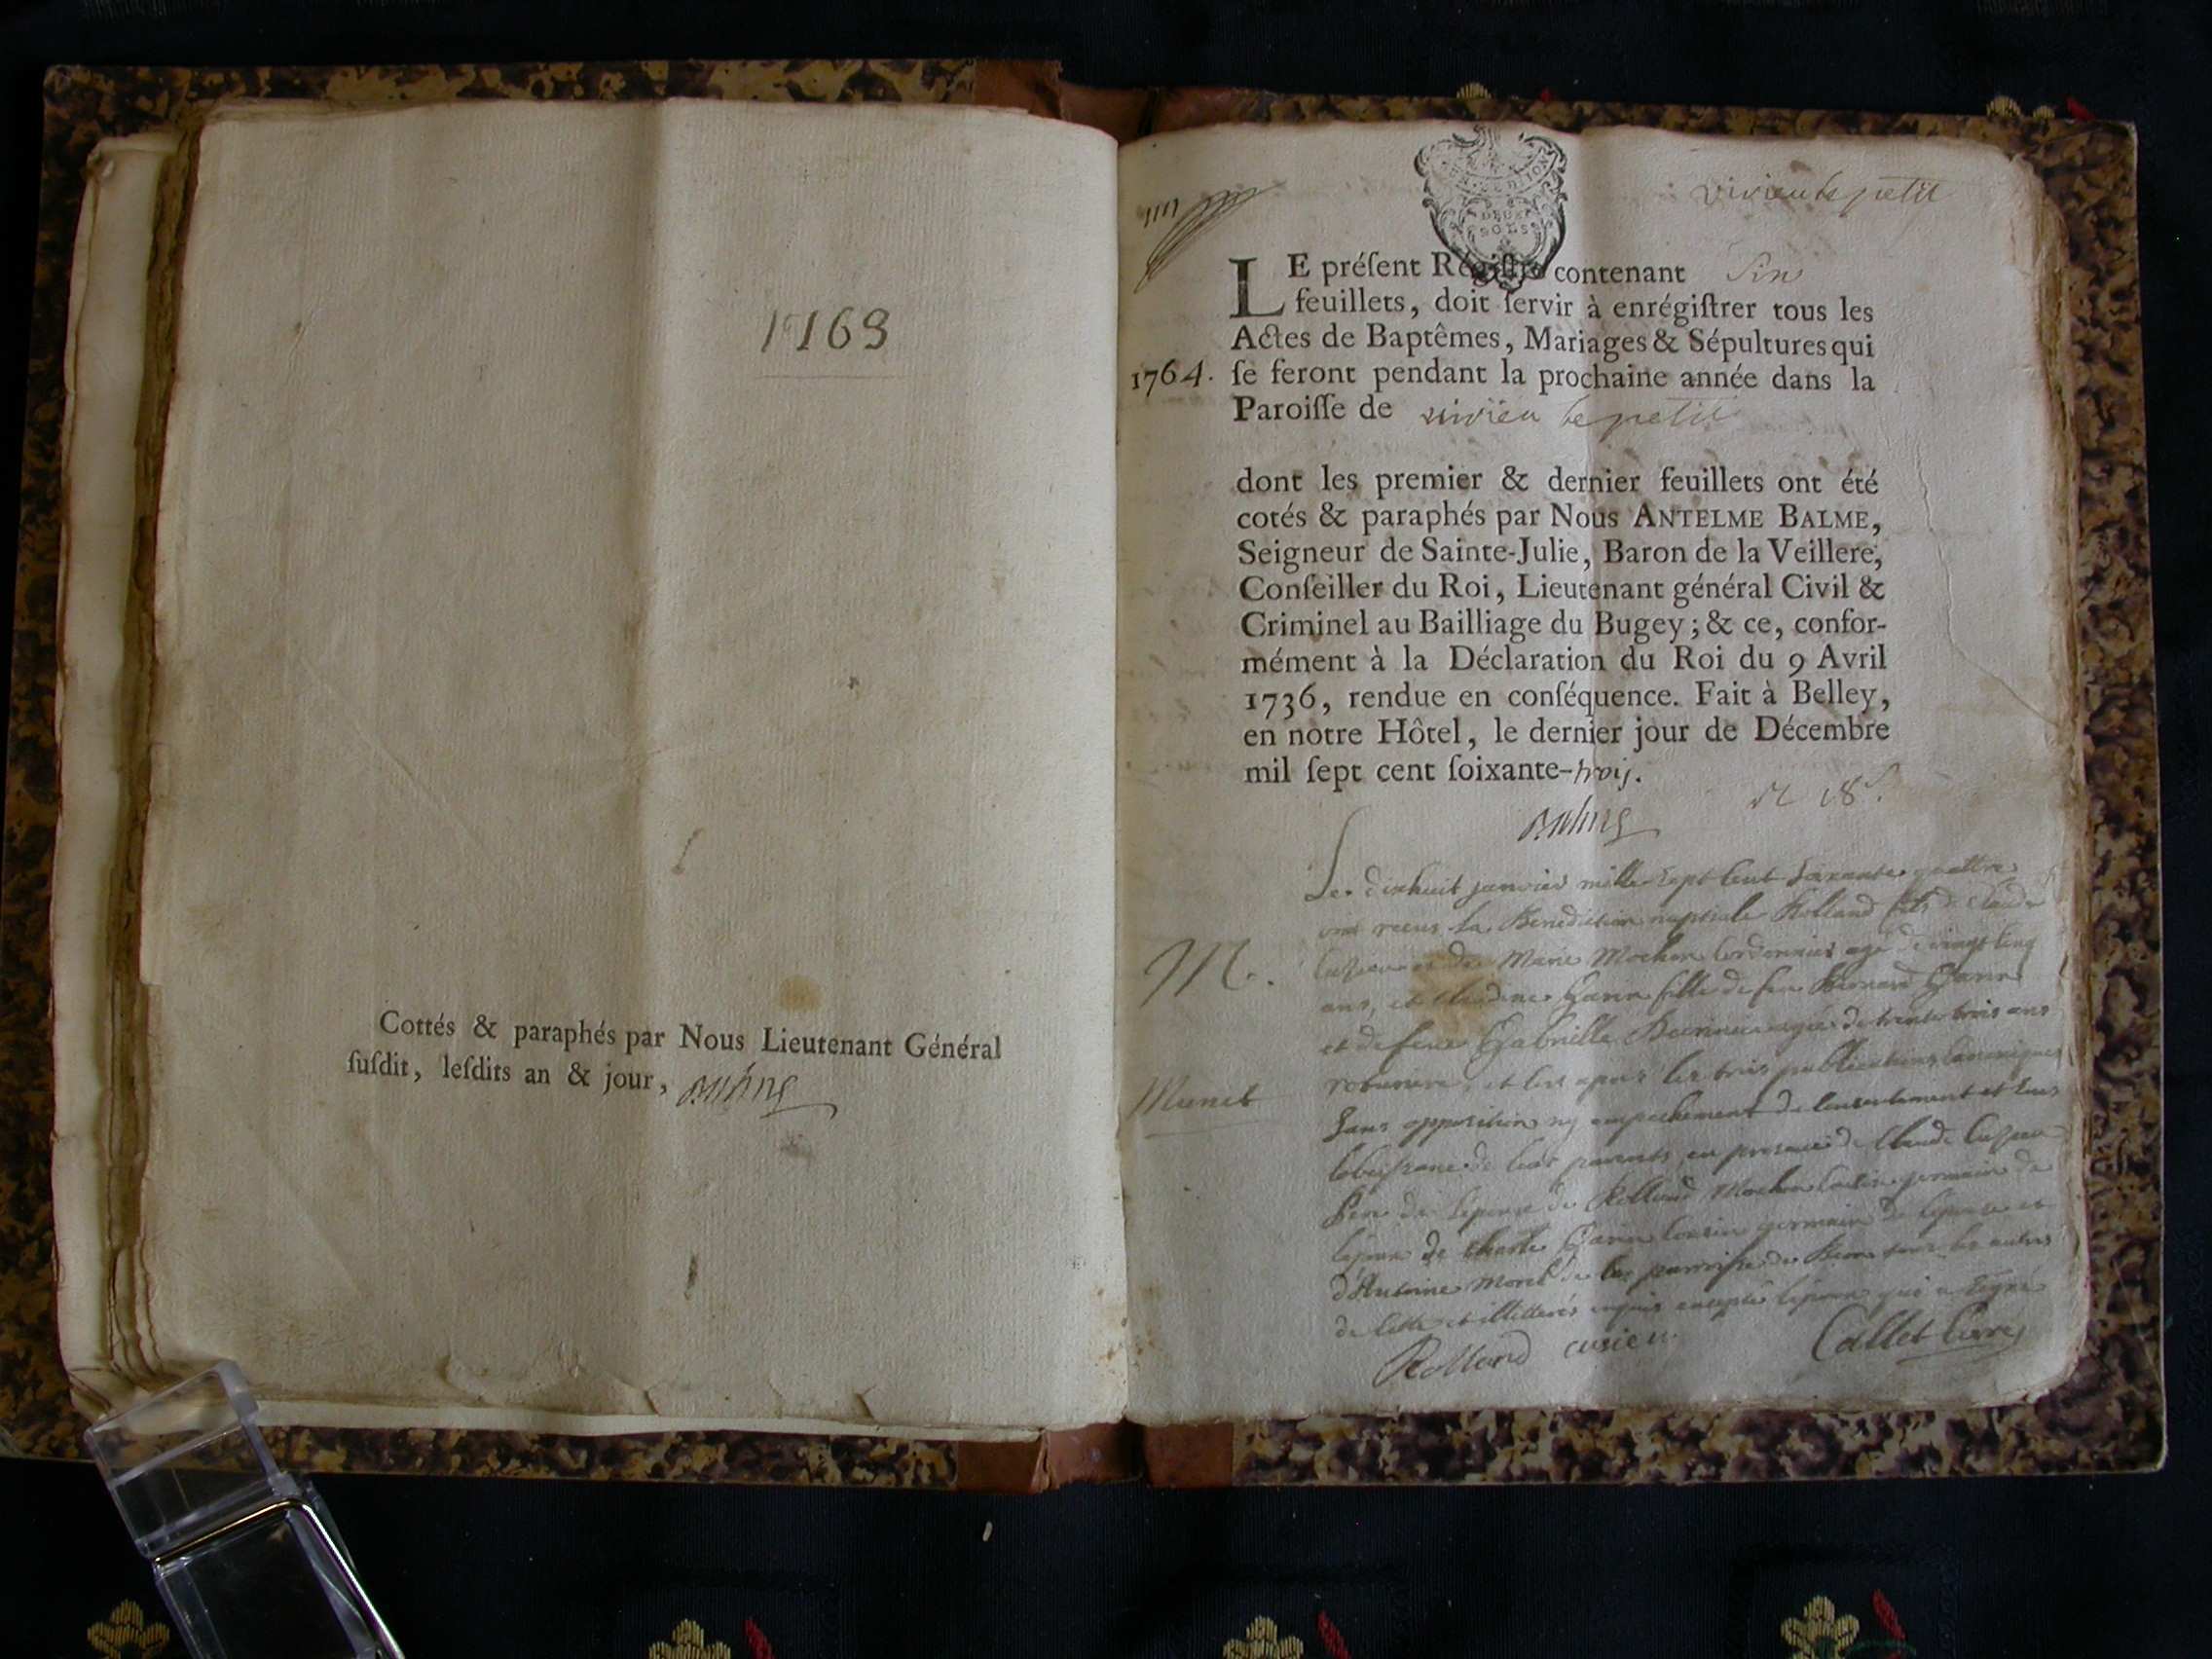 1763
Cottés & paraphés par Nous Lieutenant Général
ſuſdit, leſdits an & jour,
vivieu le petit
DEUX
SOLS
LE préſent Régiſtre contenant Six
feuillets, doit ſervir à enrégiſtrer tous les
Actes de Baptêmes, Mariages & Sépultures qui
1764. ſe feront pendant la prochaine année dans la
Paroiſſe de vivieu le petit
dont les premier & dernier feuillets ont été
cotés & paraphés par Nous ANTELME BALME,
Seigneur de Sainte-Julie, Baron de la Veillere,
Conſeiller du Roi, Lieutenant général Civil &
Criminel au Bailliage du Bugey ; & ce, confor-
mément à la Déclaration du Roi du 9 Avril
1736, rendue en conſéquence. Fait à Belley,
en nôtre Hôtel, le dernier jour de Décembre
mil ſept cent ſoixante-trois.
Le dixhuit janvier mille sept cent soixante quattre
ont receus la Benediction nuptiale Rolland fils de Claude
M.
de Marie Mochon Cordonnier agé de vingt cinq
ans, et Claudine Garin fille de feu Bernard Garin
et de feue Gabrielle agée de trente trois ans
et ce apres les trois publications canoniques
Munet
sans opposition ny empechement du consentement et sous
de leur parents en presence de Claude
pere de lepoux de Rolland Mochon cousin germain de
lepoux de Charle Garin cousin germain de lepouse et
dAntoine Morel de la parroisse de tous les autres
illitterés enquis excepté lepoux qui a signé
Rolland cusieu
Callet Curé